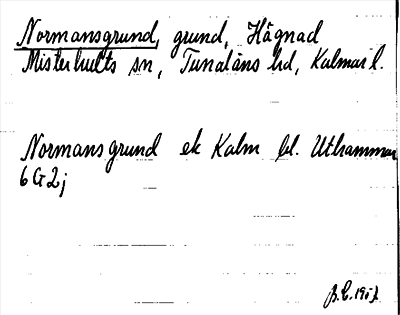 Normansgrund, grund, Hågnad
Misterhults sn, Tunaläns hd, Kalmar l.
Normansgrund ek Kalm bl. Uthammar
6G2j